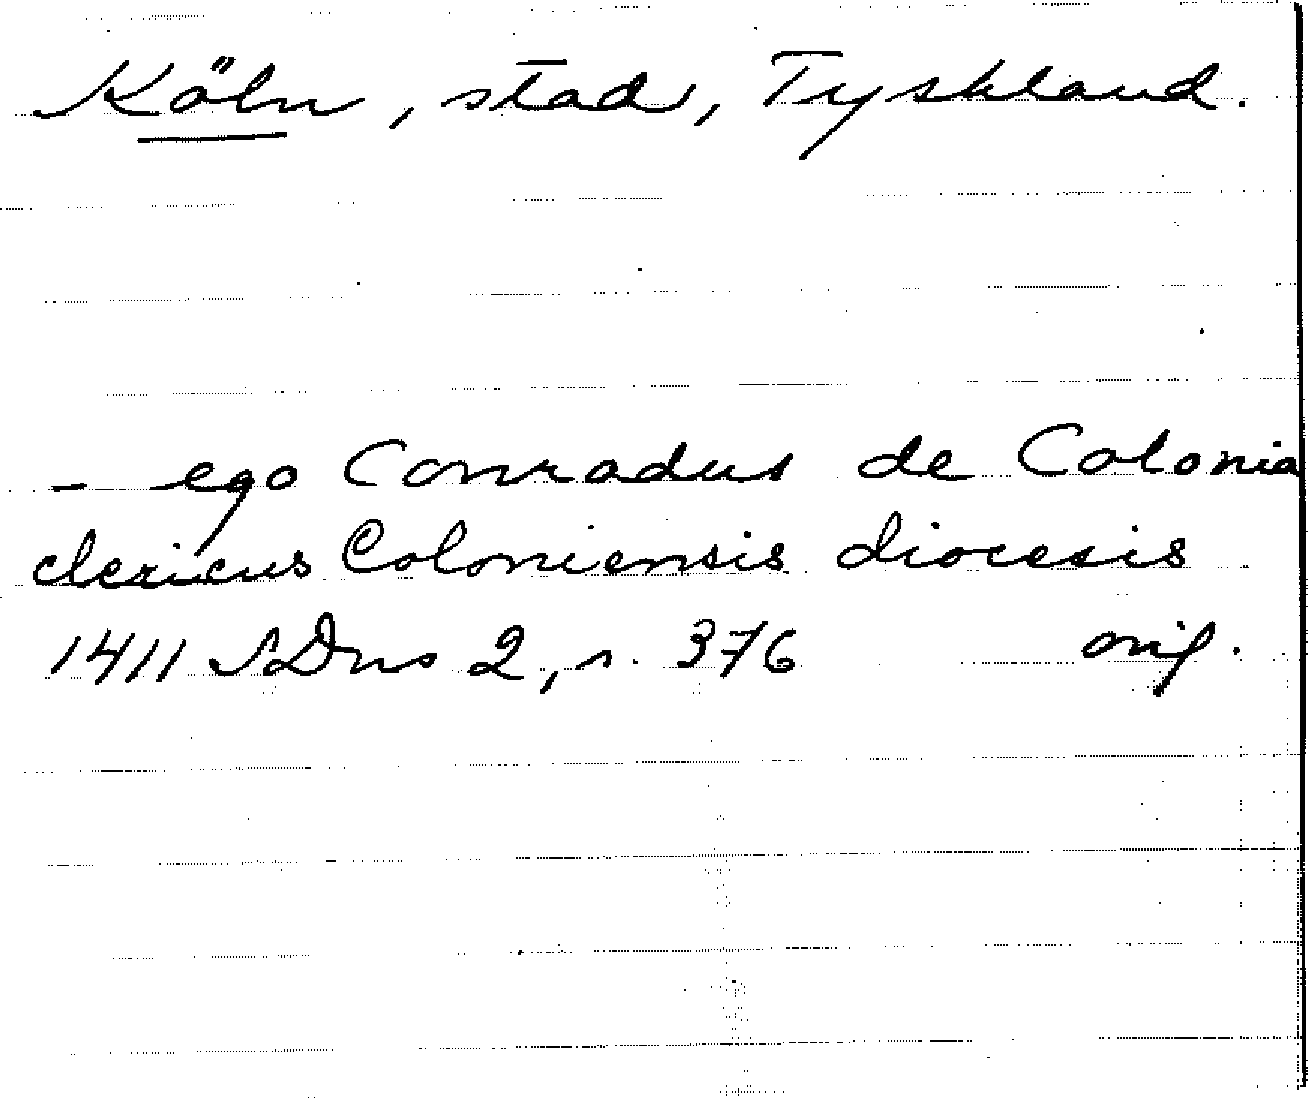 Köln, stad, Tyskland.
- ego Conradus de Colonia
clericus Coloniensis diocesis
1411 SDns 2, s. 376 orig.